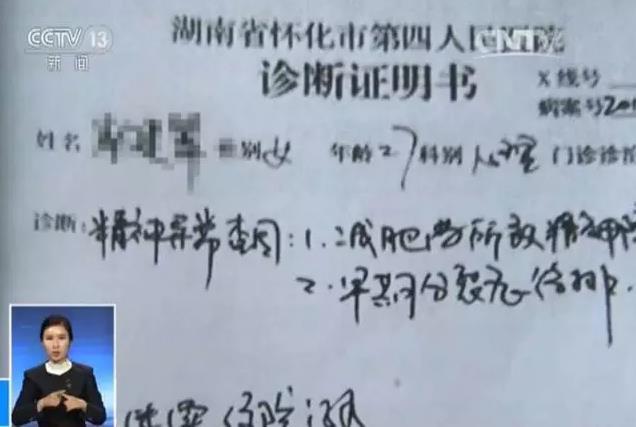 CCTV 13
新闻
湖南省怀化市第四人民医院
CNTV
诊断证明书
X线号
病案号200
姓名 别女 年龄27 科别 门诊
诊断:精神异常查因:1.减肥药所致精神障
2.早期分裂症待排.